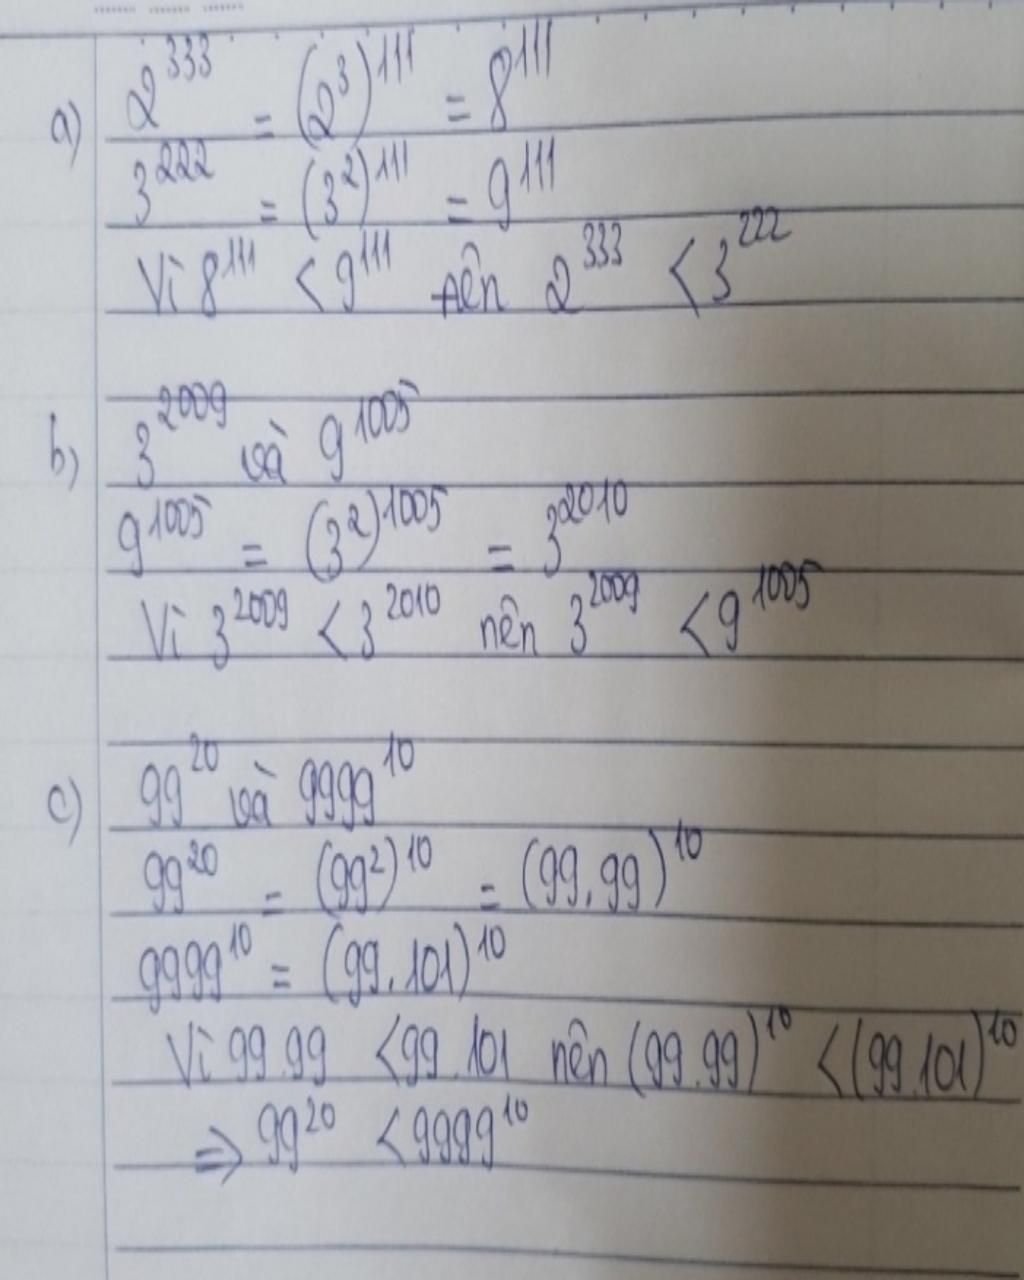 a) 2³³³ = (2³)¹¹¹ = 8¹¹¹
3²²² = (3²)¹¹¹ = 9¹¹¹
Vì 8¹¹¹ < 9¹¹¹ nên 2³³³ < 3²²²
b) 3²⁰⁰⁹ và 9¹⁰⁰⁵
9¹⁰⁰⁵ = (3²)¹⁰⁰⁵ = 3²⁰¹⁰
Vì 3²⁰⁰⁹ < 3²⁰¹⁰ nên 3²⁰⁰⁹ < 9¹⁰⁰⁵
c) 99²⁰ và 9999¹⁰
99²⁰ = (99²)¹⁰ = (99.99)¹⁰
9999¹⁰ = (99.101)¹⁰
Vì 99.99 < 99.101 nên (99.99)¹⁰ < (99.101)¹⁰
⇒ 99²⁰ < 9999¹⁰